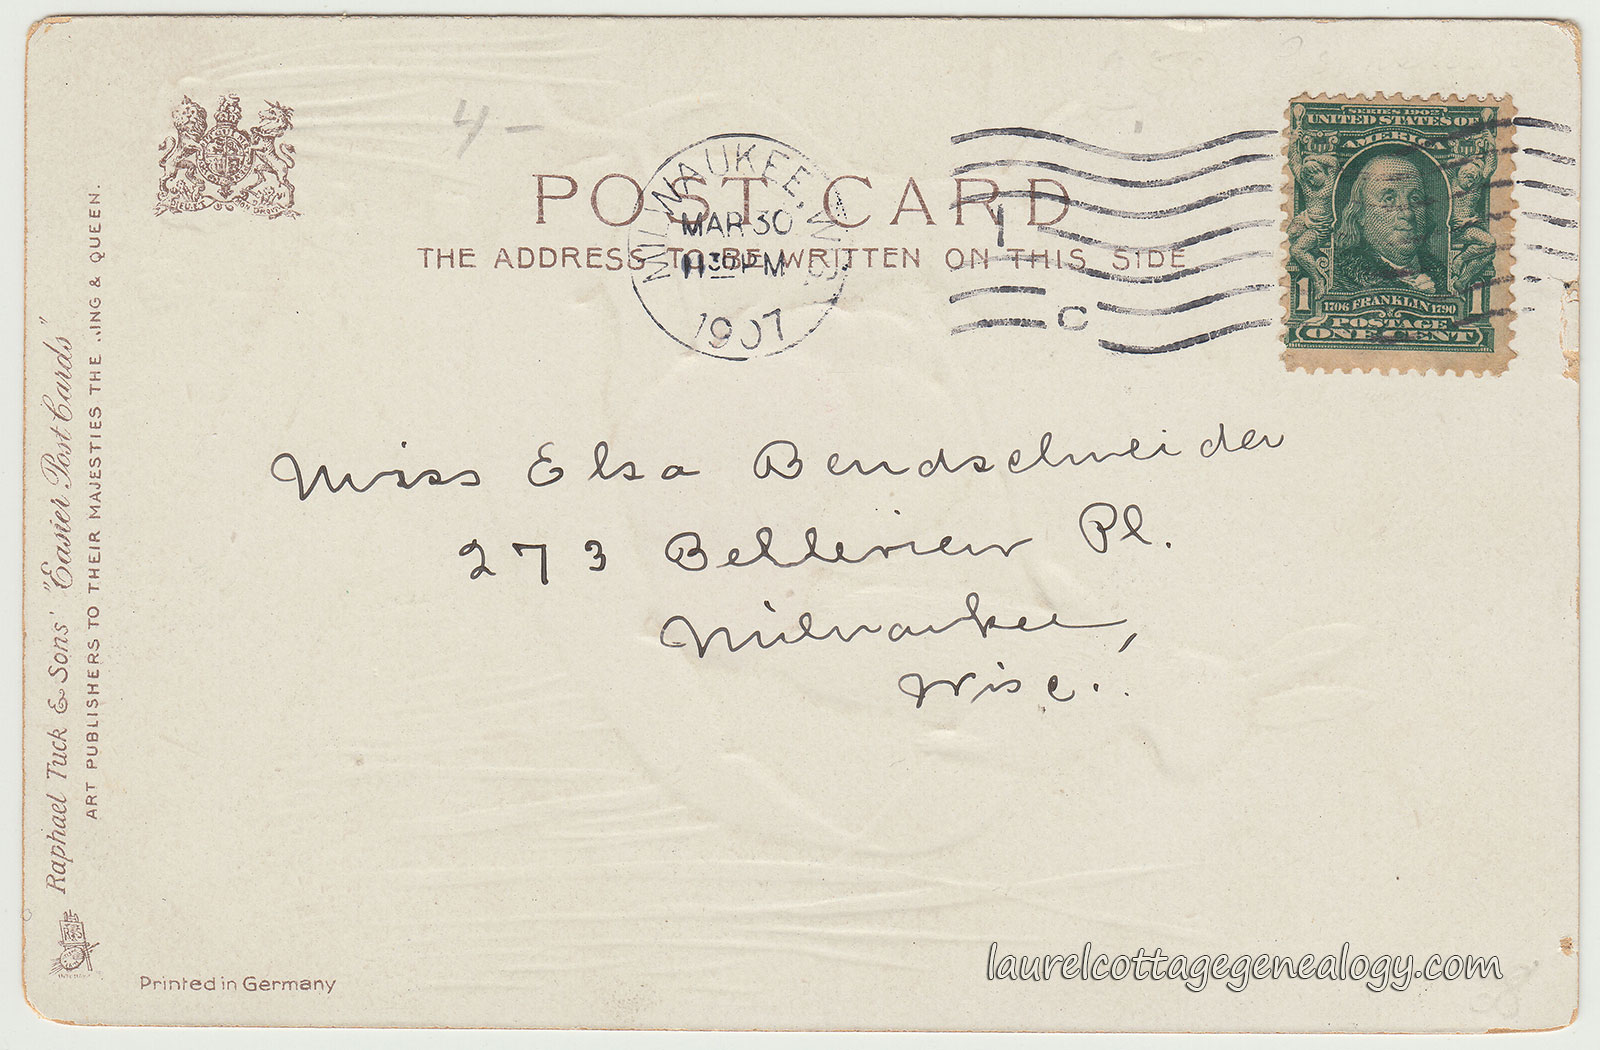 4-
POST CARD
THE ADDRESS TO BE WRITTEN ON THIS SIDE
MILWAUKEE, WIS.
MAR 30
1907
1
C
SERIES 1902
UNITED STATES OF
AMERICA
1706 FRANKLIN 1790
1 1
POSTAGE
ONE CENT
Miss Elsa Bendschneider
273 Belleview Pl.
Milwaukee,
Wisc.
Raphael Tuck & Sons' "Easter Post Cards"
ART PUBLISHERS TO THEIR MAJESTIES THE KING & QUEEN.
Printed in Germany
laurelcottagegenealogy.com